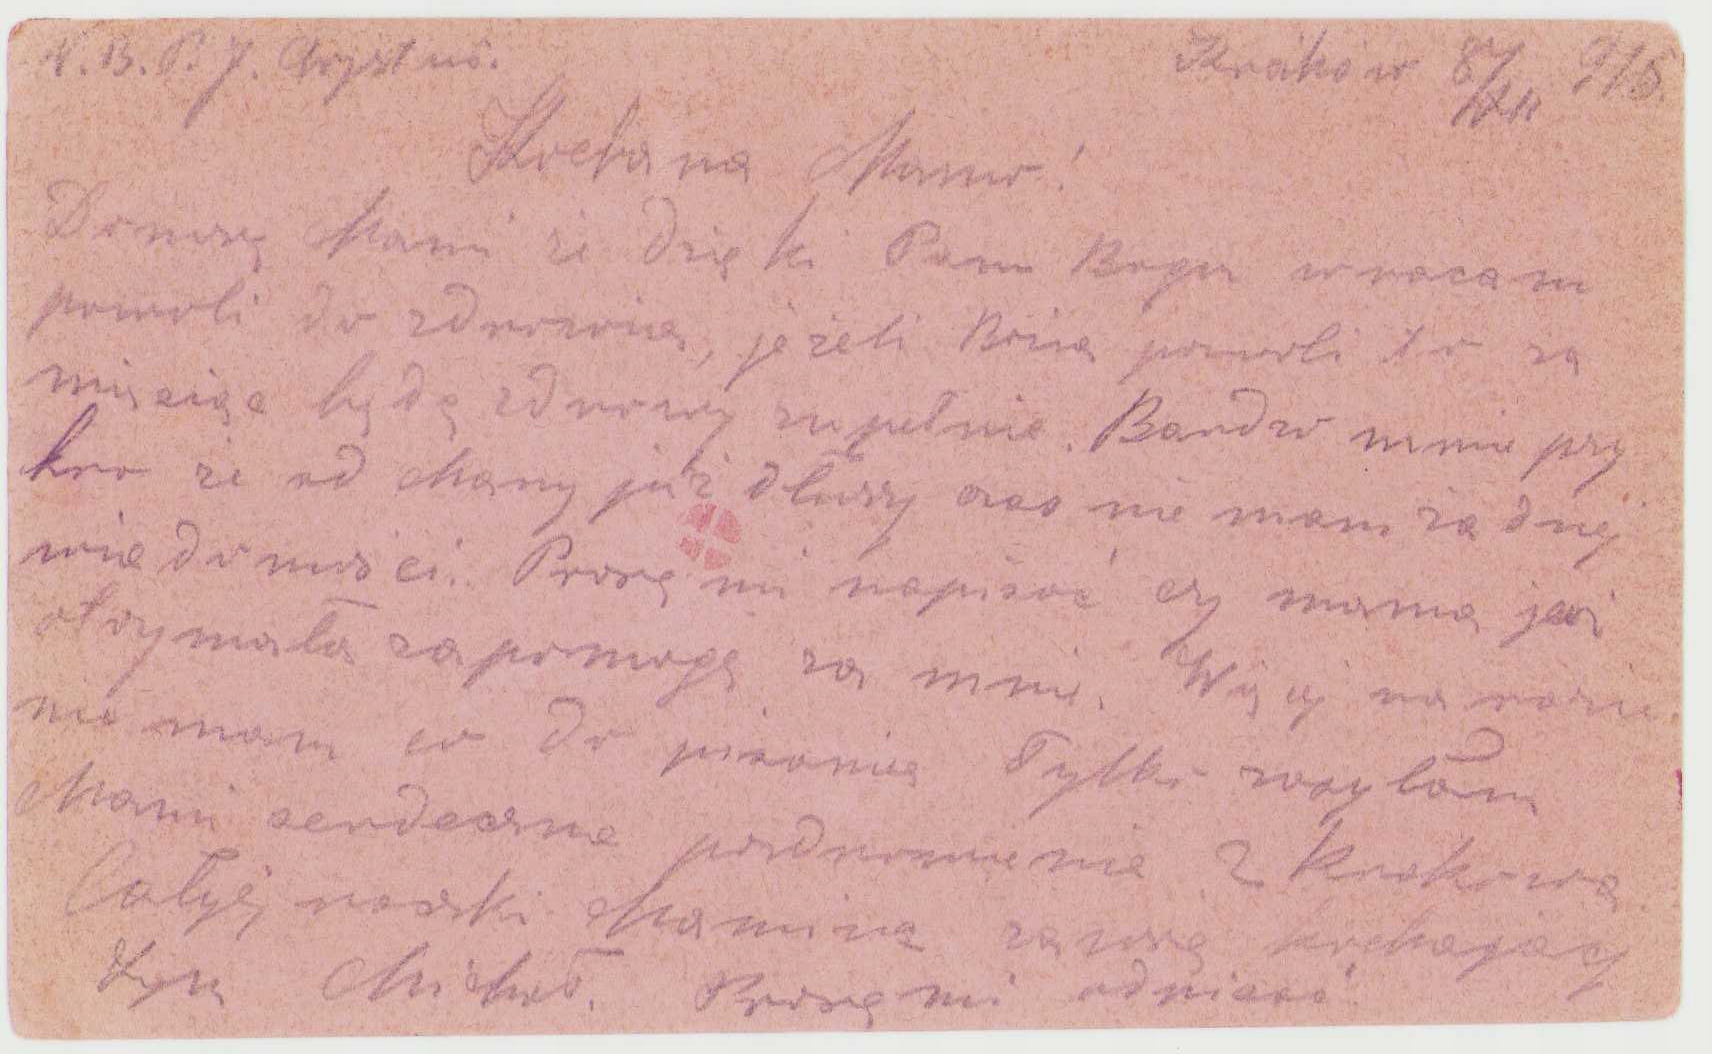 N. B. P. J. Chrystus. Kraków 8/XII 915.
Kochana Mamo!
Donoszę Mami że dzięki Panu Bogu wracam
powoli do zdrowia, jeżeli Bozia powoli to za
miesiąc będę zdrowy zupełnie. Bardzo mnie przy
kro że od Mamy już dłuszy czas nie mam żadnej
wiedomości. Proszę mi napisać czy mama już
otrzymała zapomogę za mnie. Więcy na razie
nie mam co do pisania Tylko zasyłam
Mami serdeczne pozdrowienie z Krakowa
Całyję rączki Mamine zawsze kochający
Syn Michał. Proszę mi odpisać